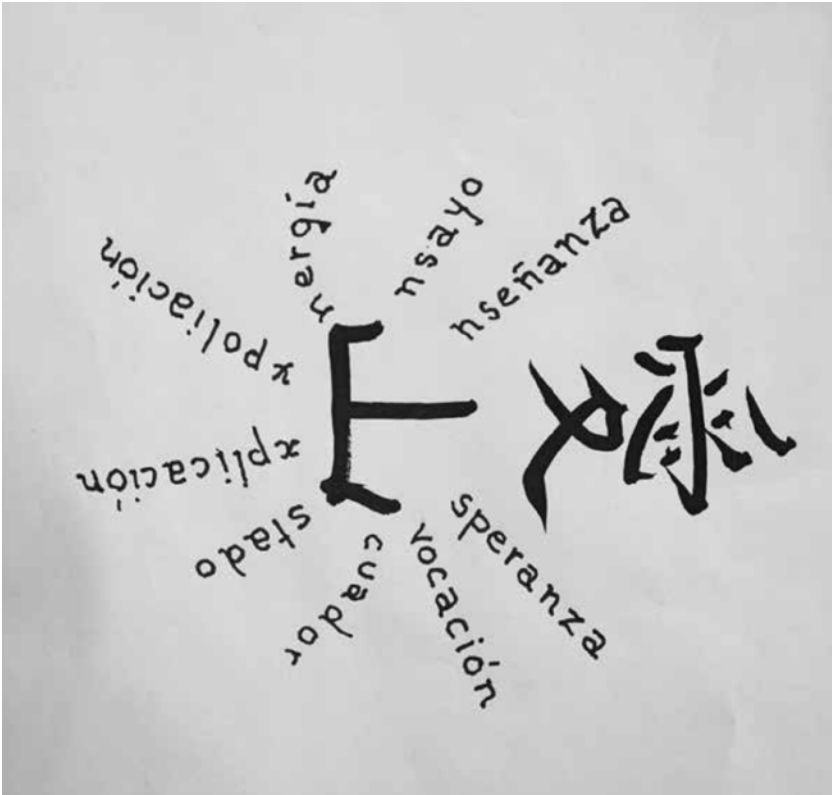 E
nergía
nsayo
nseñanza
愛
speranza
vocación
cuador
stado
xplicación
xpoliación